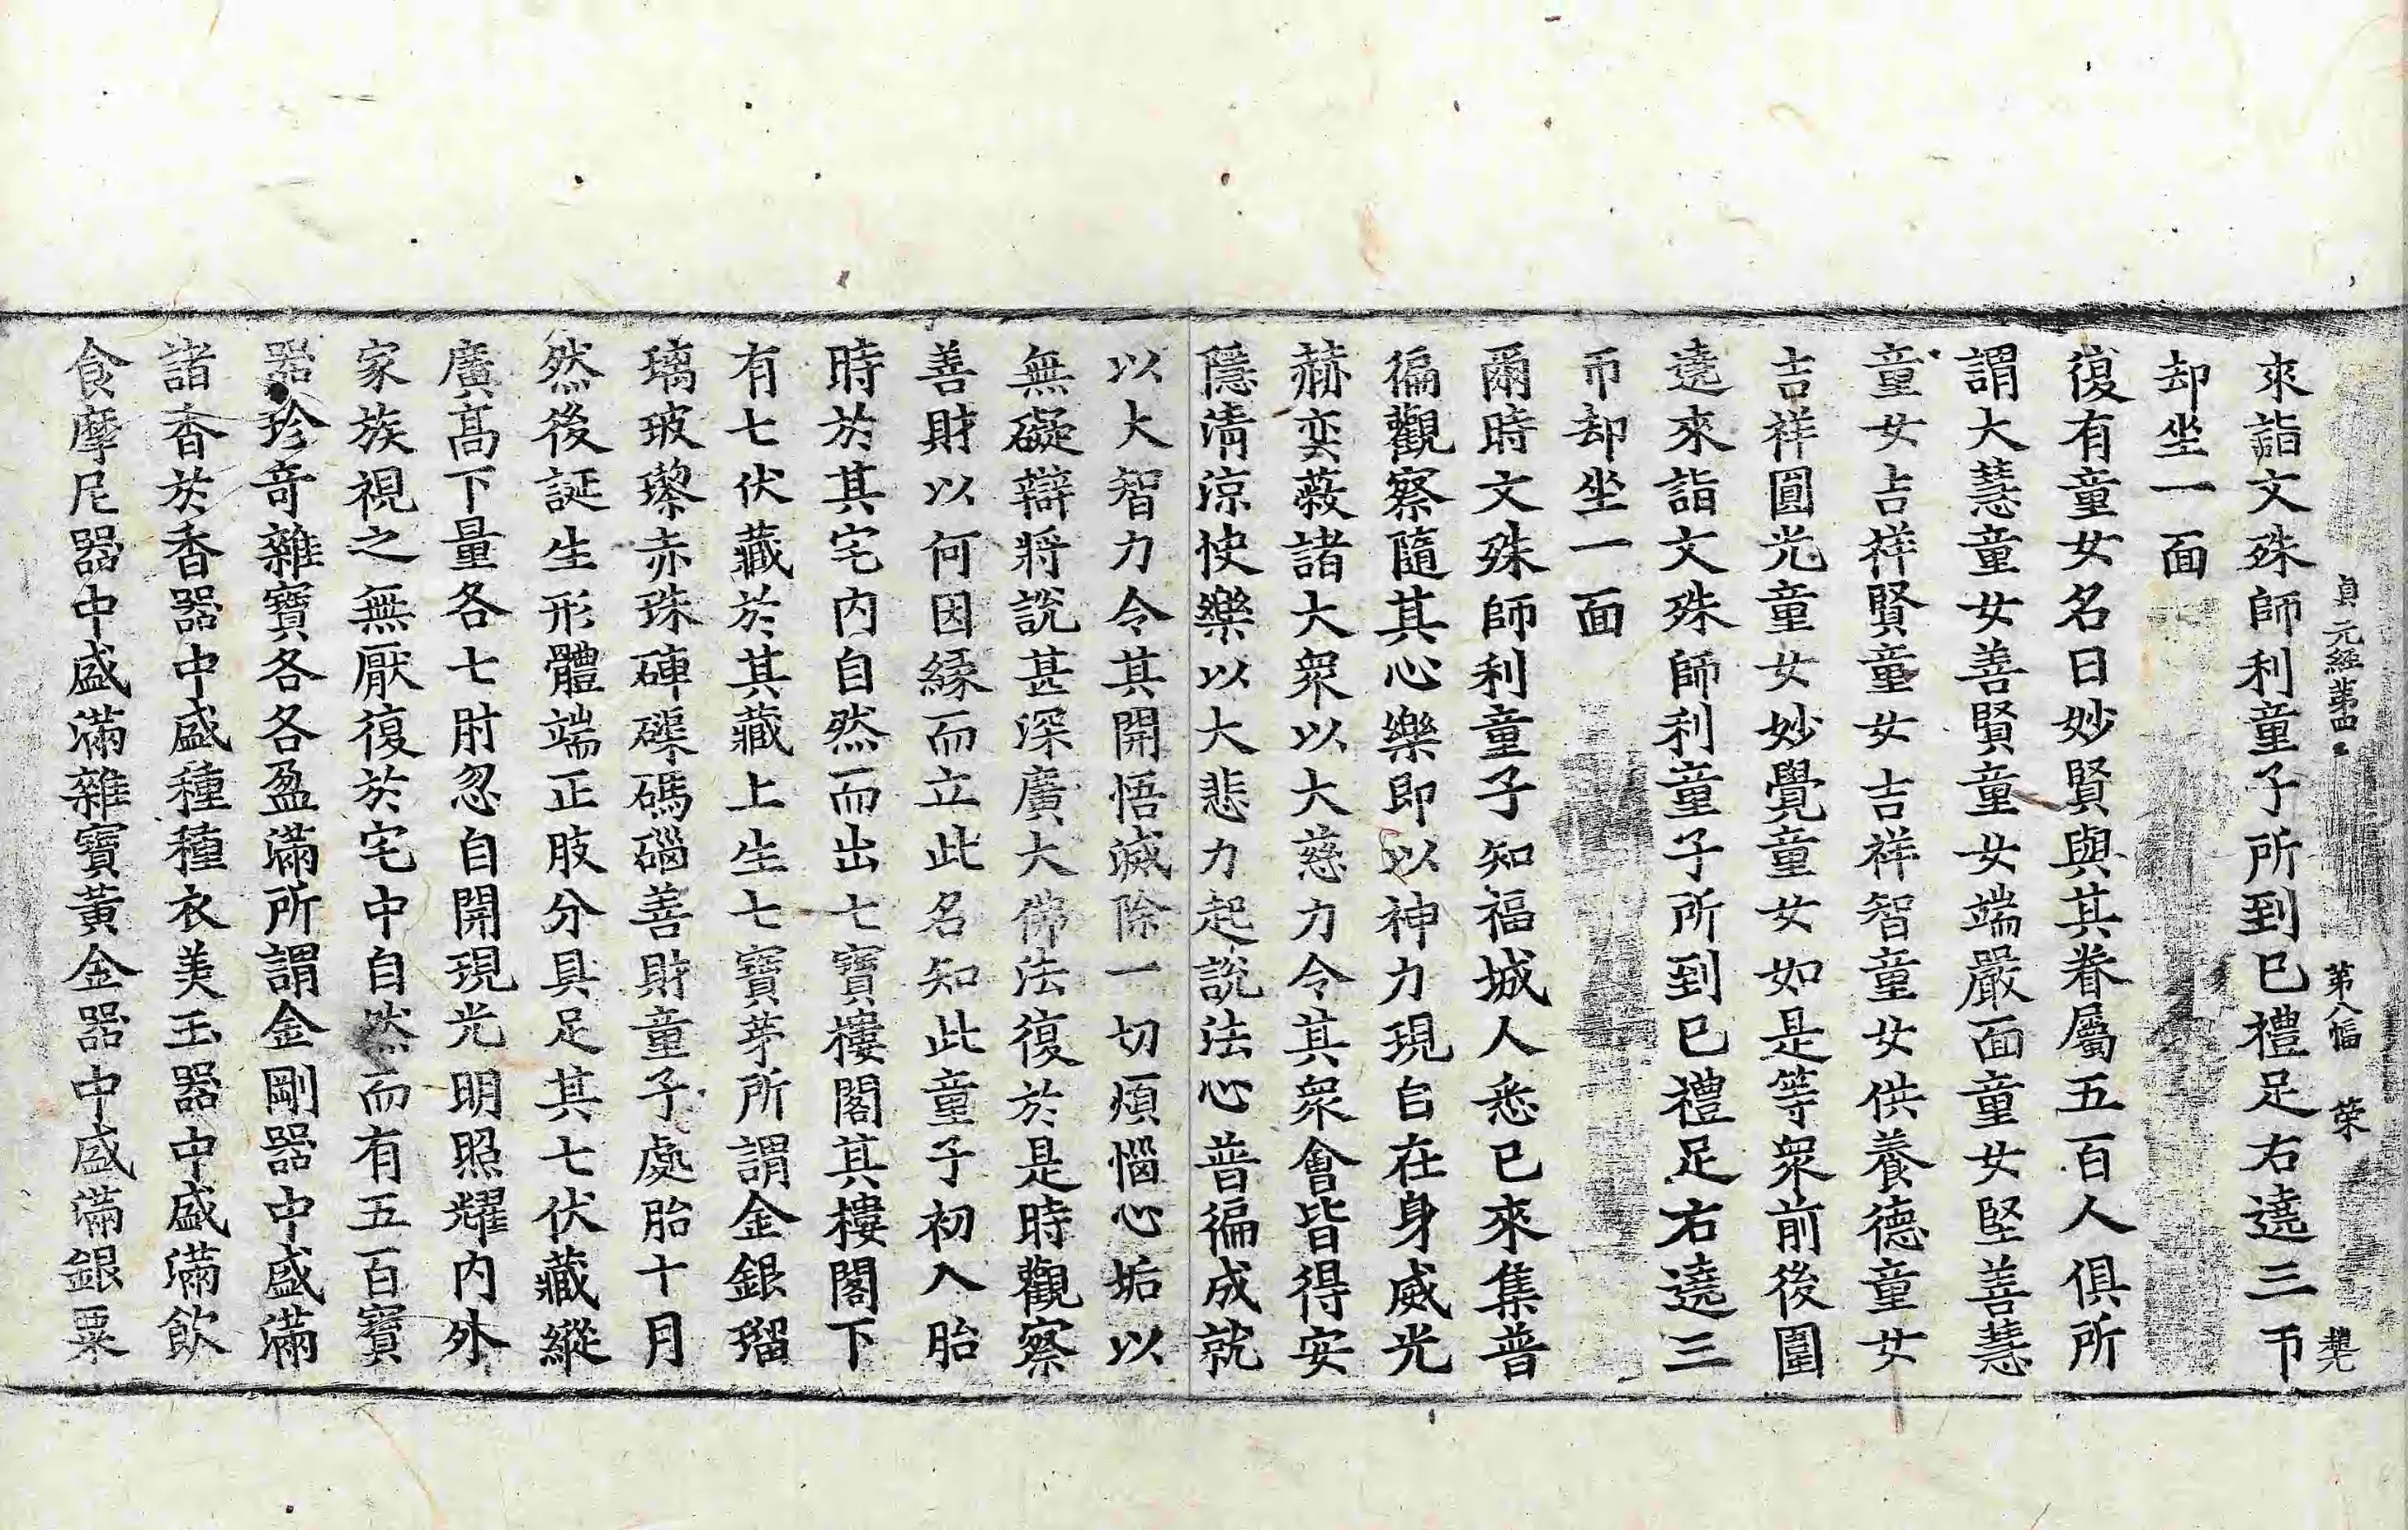 貞元経第四 第八幅 荣
來詣文殊師利童子所到已禮足右遶三帀
却坐一面
復有童女名曰妙賢與其眷屬五百人俱所
謂大慧童女善賢童女端嚴面童女堅善慧
童女吉祥賢童女吉祥智童女供養德童女
吉祥圓光童女妙覺童女如是等衆前後圍
遶來詣文殊師利童子所到已禮足右遶三
帀却坐一面
爾時文殊師利童子知福城人悉已來集普
徧觀察隨其心樂即以神力現自在身威光
赫奕蔽諸大衆以大慈力令其衆會皆得安
隱清涼快樂以大悲力起說法心普徧成就
以大智力令其開悟滅除一切煩惱心垢以
無礙辯將說甚深廣大佛法復於是時觀察
善財以何因緣而立此名知此童子初入胎
時於其宅内自然而出七寶樓閣其樓閣下
有七伏藏於其藏上生七寶芽所謂金銀瑠
璃玻瓈赤珠硨磲碼碯善財童子處胎十月
然後誕生形體端正肢分具足其七伏藏縱
廣高下量各七肘忽自開現光明照耀内外
家族視之無厭復於宅中自然而有五百寶
器珍奇雜寶各各盈滿所謂金剛器中盛滿
諸香於香器中盛種種衣美玉器中盛滿飲
食摩尼器中盛滿雜寶黃金器中盛滿銀粟